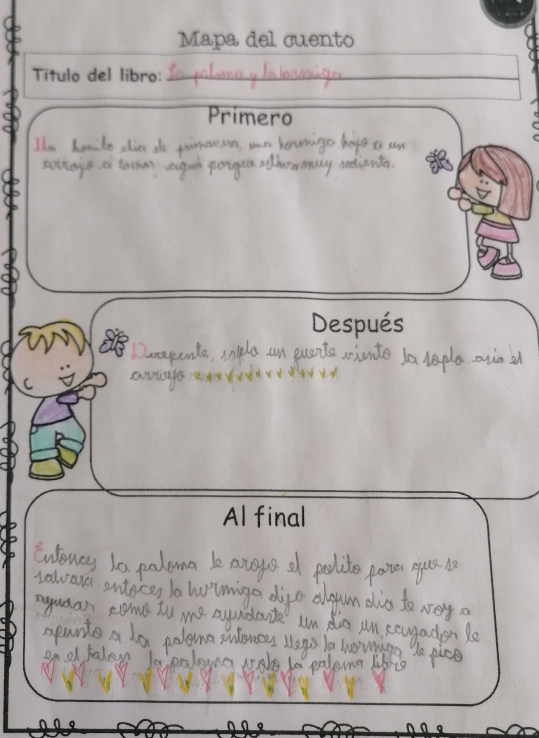 Mapa del cuento
Titulo del libro: La paloma y la hormiga
Primero
Un bonito dia de primavera, una hormiga bajo a un
arroyo a tomar agua porque estava muy sedienta.
Después
Derepente, soplo un fuerte viento la soplo asia el
arroyo
Al final
Entonces la paloma le arojo el palito para que se
salvara entoces la hormiga dijo algun dia te voy a
ayudar como tu me ayudaste un dia un cazador le
apunto a la paloma entonces llego la hormiga le pico
en el talon la paloma volo la paloma libre